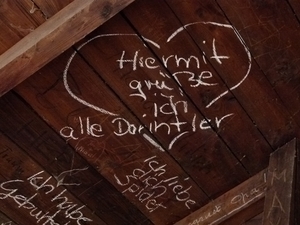 Hiermit
grüße
ich
alle Darintler
Ich liebe
dich
Spider
Ich habe
Geburts